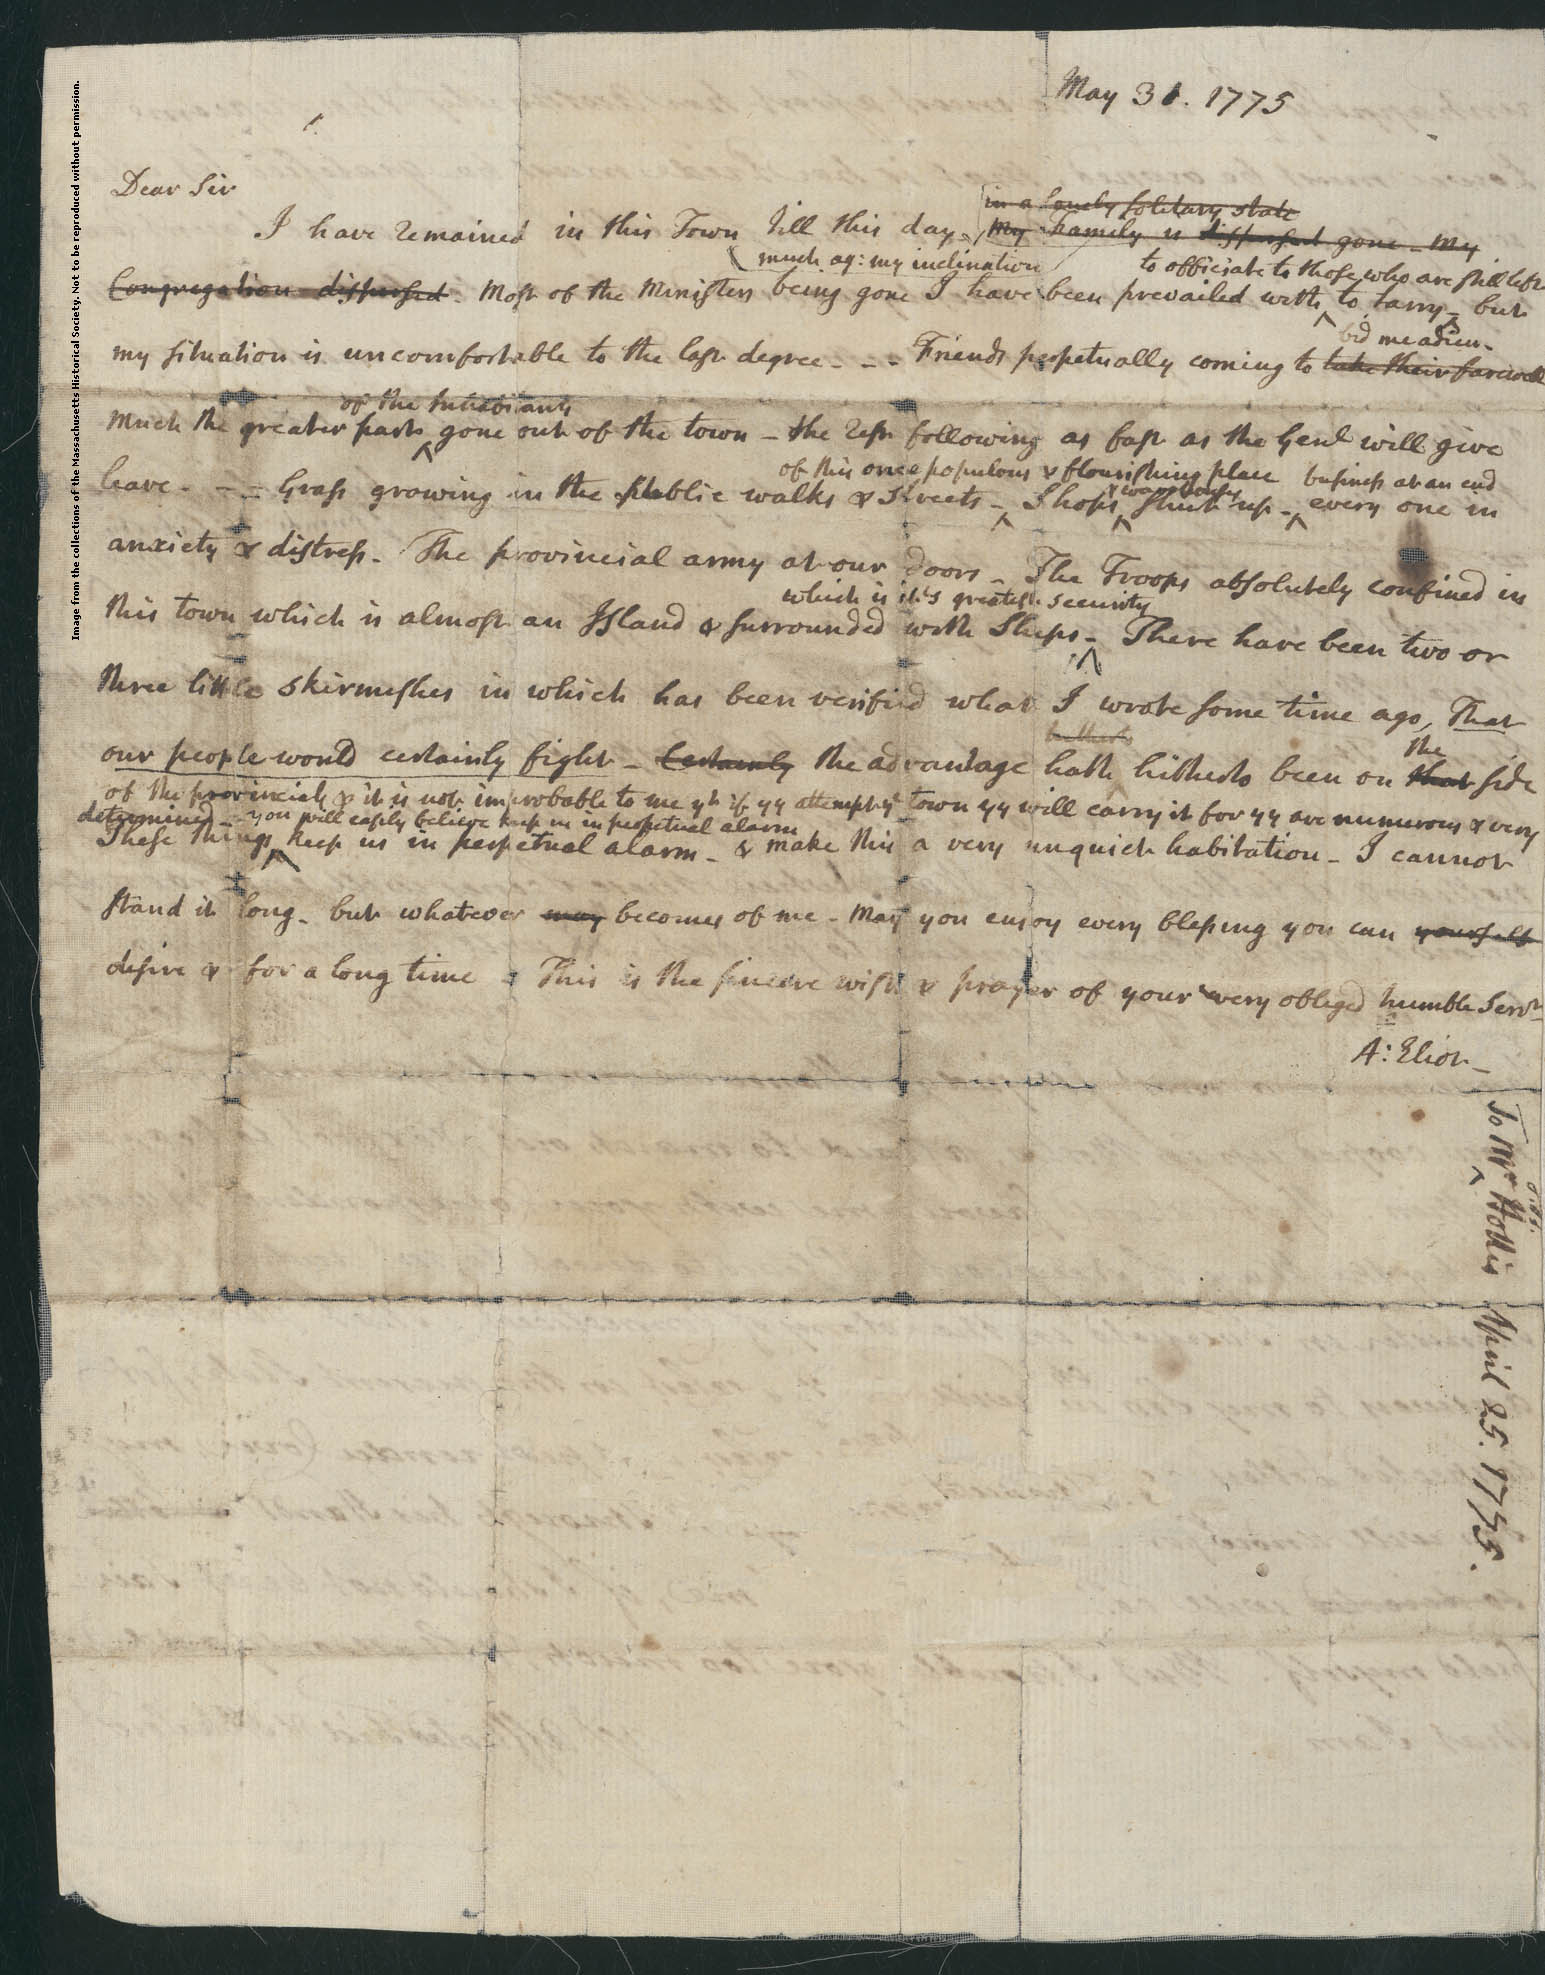 May 31. 1775
Dear Sir
in a lonely solitary state
I have remained in this Town till this day My Family is dispersed gone - My
much ag: my inclination to officiate to those who are still left
Congregation dispersed - Most of the Ministers being gone I have been prevailed with to tarry - but
bid me adieu -
my situation is uncomfortable to the last degree - - - Friends perpetually coming to take their farewell
of the Inhabitants
Much the greater part gone out of the town - the rest following as fast as the Genl will give
of this once populous & flourishing place business at an end
& ware houses
leave - - - Grass growing in the public walks & streets - Shops shut up - every one in
anxiety & distress - The provincial army at our doors - The Troops absolutely confined in
which is it's greatest security
this town which is almost an Island & surrounded with Ships - There have been two or
three little skirmishes in which has been verified what I wrote some time ago, That
hitherto the
our people would certainly fight - Certainly the advantage hath hitherto been on that side
of the provincials & it is not improbable to me yt if yy attempt ye town yy will carry it for yy are numerous & very
determined - you will easily believe keep us in perpetual alarm
These things keep us in perpetual alarm - & make this a very unquiet habitation - I cannot
stand it long - but whatever may becomes of me - May you enjoy every blessing you can yourself
desire & for a long time - This is the sincere wish & prayer of your very obliged humble Servt
A: Eliot -
To Mr Hollis April 25. 1775.
Image from the collections of the Massachusetts Historical Society. Not to be reproduced without permission.